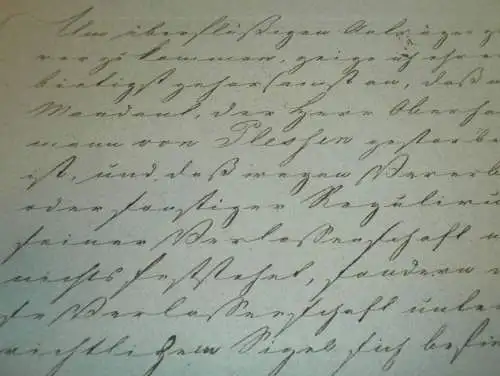 Um überflüßigen Anträgen z
vorzukommen, zeige ich ehre
bietigst gehorsamst an, daß m
Mandant, der Herr Oberha
mann von Plessen gestorbe
ist, und daß wegen Vererb
oder sonstiger Regulirun
seiner Verlassenschaft n
nichts feststehet, sondern
Verlassenschaft unte
richtlichem Sigel sich befin